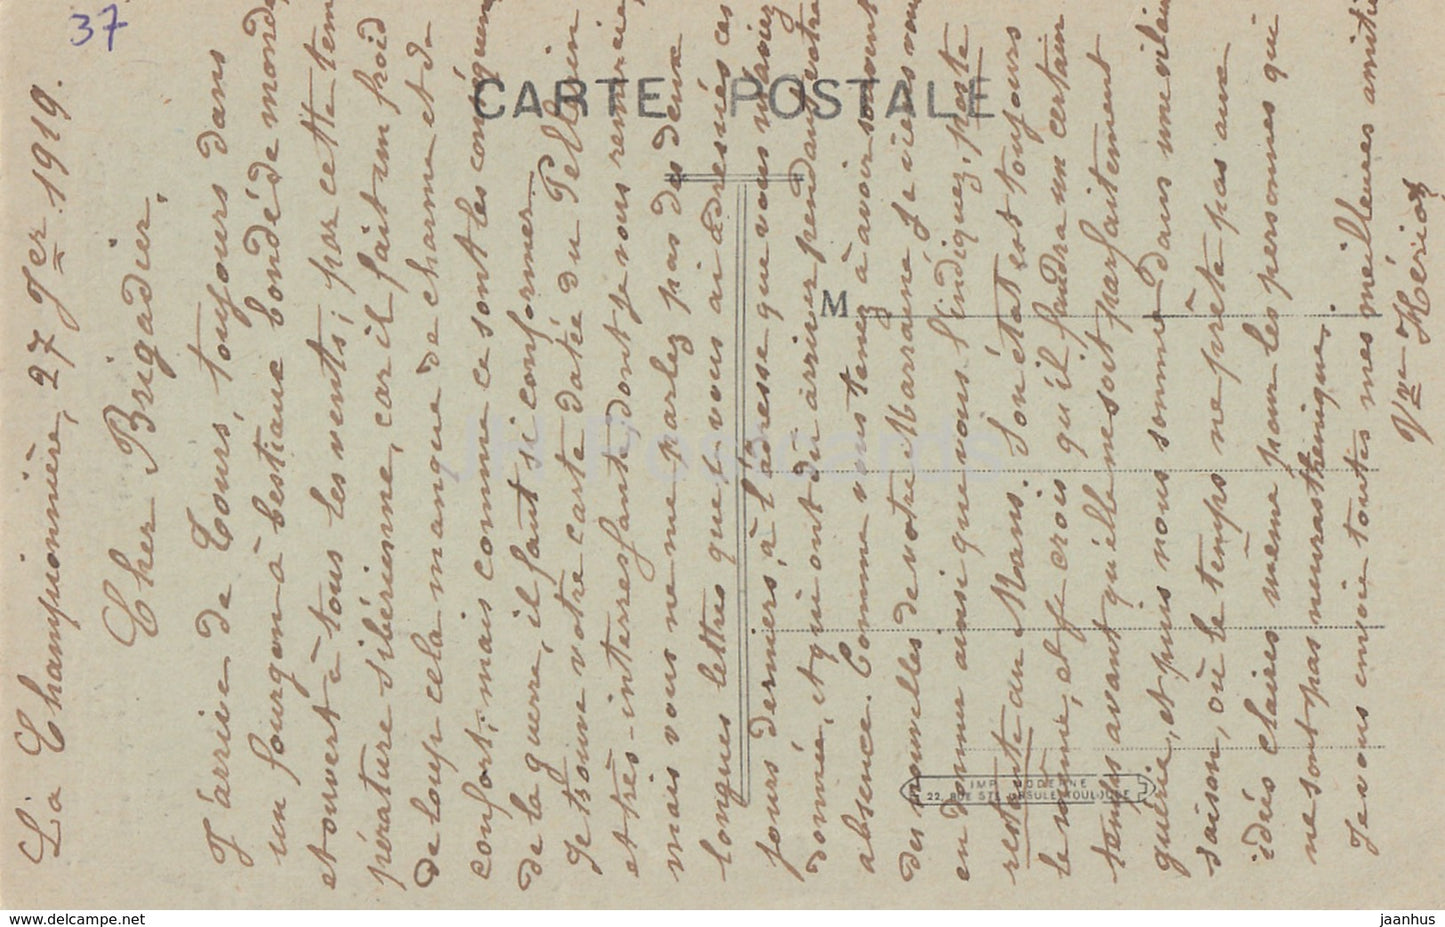 37
CARTE POSTALE
M
IMP. MODERNE
22, RUE STE URSULE, TOULOUSE
La Championnière, 27 Jer 1919.
Cher Brigadier,
J'arrive de Tours, toujours dans
un fourgon à bestiaux bondé de monde
et ouvert à tous les vents; par cette tem
pérature sibérienne, car il fait un froid
de loup cela manque de charme et de
confort, mais comme ce sont les conséquen
de la guerre, il faut s'i conformer.
Je trouve votre carte datée du
et très-interressante dont je vous remercie
mais vous ne me parlez pas des deux
longues lettres que je vous ai adressées ces
jours derniers, à l'adresse que vous m'aviez
donnée, et qui ont dû arriver pendant votre
absence. Comme vous tenez à avoir souvent
des nouvelles de votre Marraine je vais vous
en donner ainsi que vous l'indiquez, poste
restante au Mans. Son état est toujours
le même, et je crois qu'il faudra un certain
temps avant qu'elle ne soit parfaitement
guérie, et puis nous sommes dans une vilaine
saison, où le temps ne prête pas aux
idées claires même pour les personnes qui
ne sont pas neurasthénique.
Je vous envoie toutes mes meilleures amitiés
Vve
JH Postcards
www.delcampe.net
jaanhus